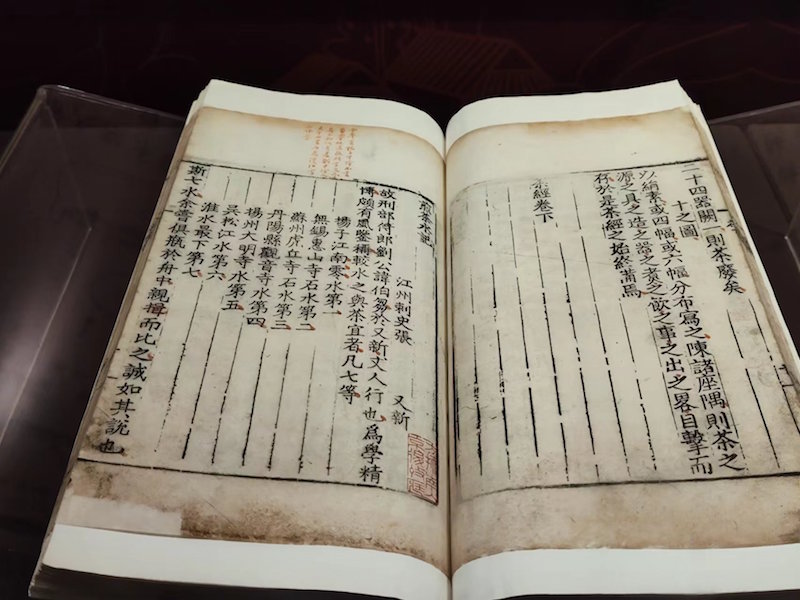 二十四器闕一則茶廢矣
十之圖
以絹素或四幅或六幅分布寫之陳諸座隅則茶之
源之具之造之器之煮之飲之事之出之畧目擊而
存於是茶經之始終備焉
茶經卷下
煎茶水記
江州刺史張 又新
故刑部侍郎劉公諱伯芻於又新丈人行也爲學精
博頗有風鑒稱較水之與茶宜者凡七等
楊子江南零水第一
無錫惠山寺石水第二
蘇州虎丘寺石水第三
丹陽縣觀音寺水第四
楊州大明寺水第五
吳松江水第六
淮水最下第七
斯七水余嘗俱瓶於舟中親揖而比之誠如其說也